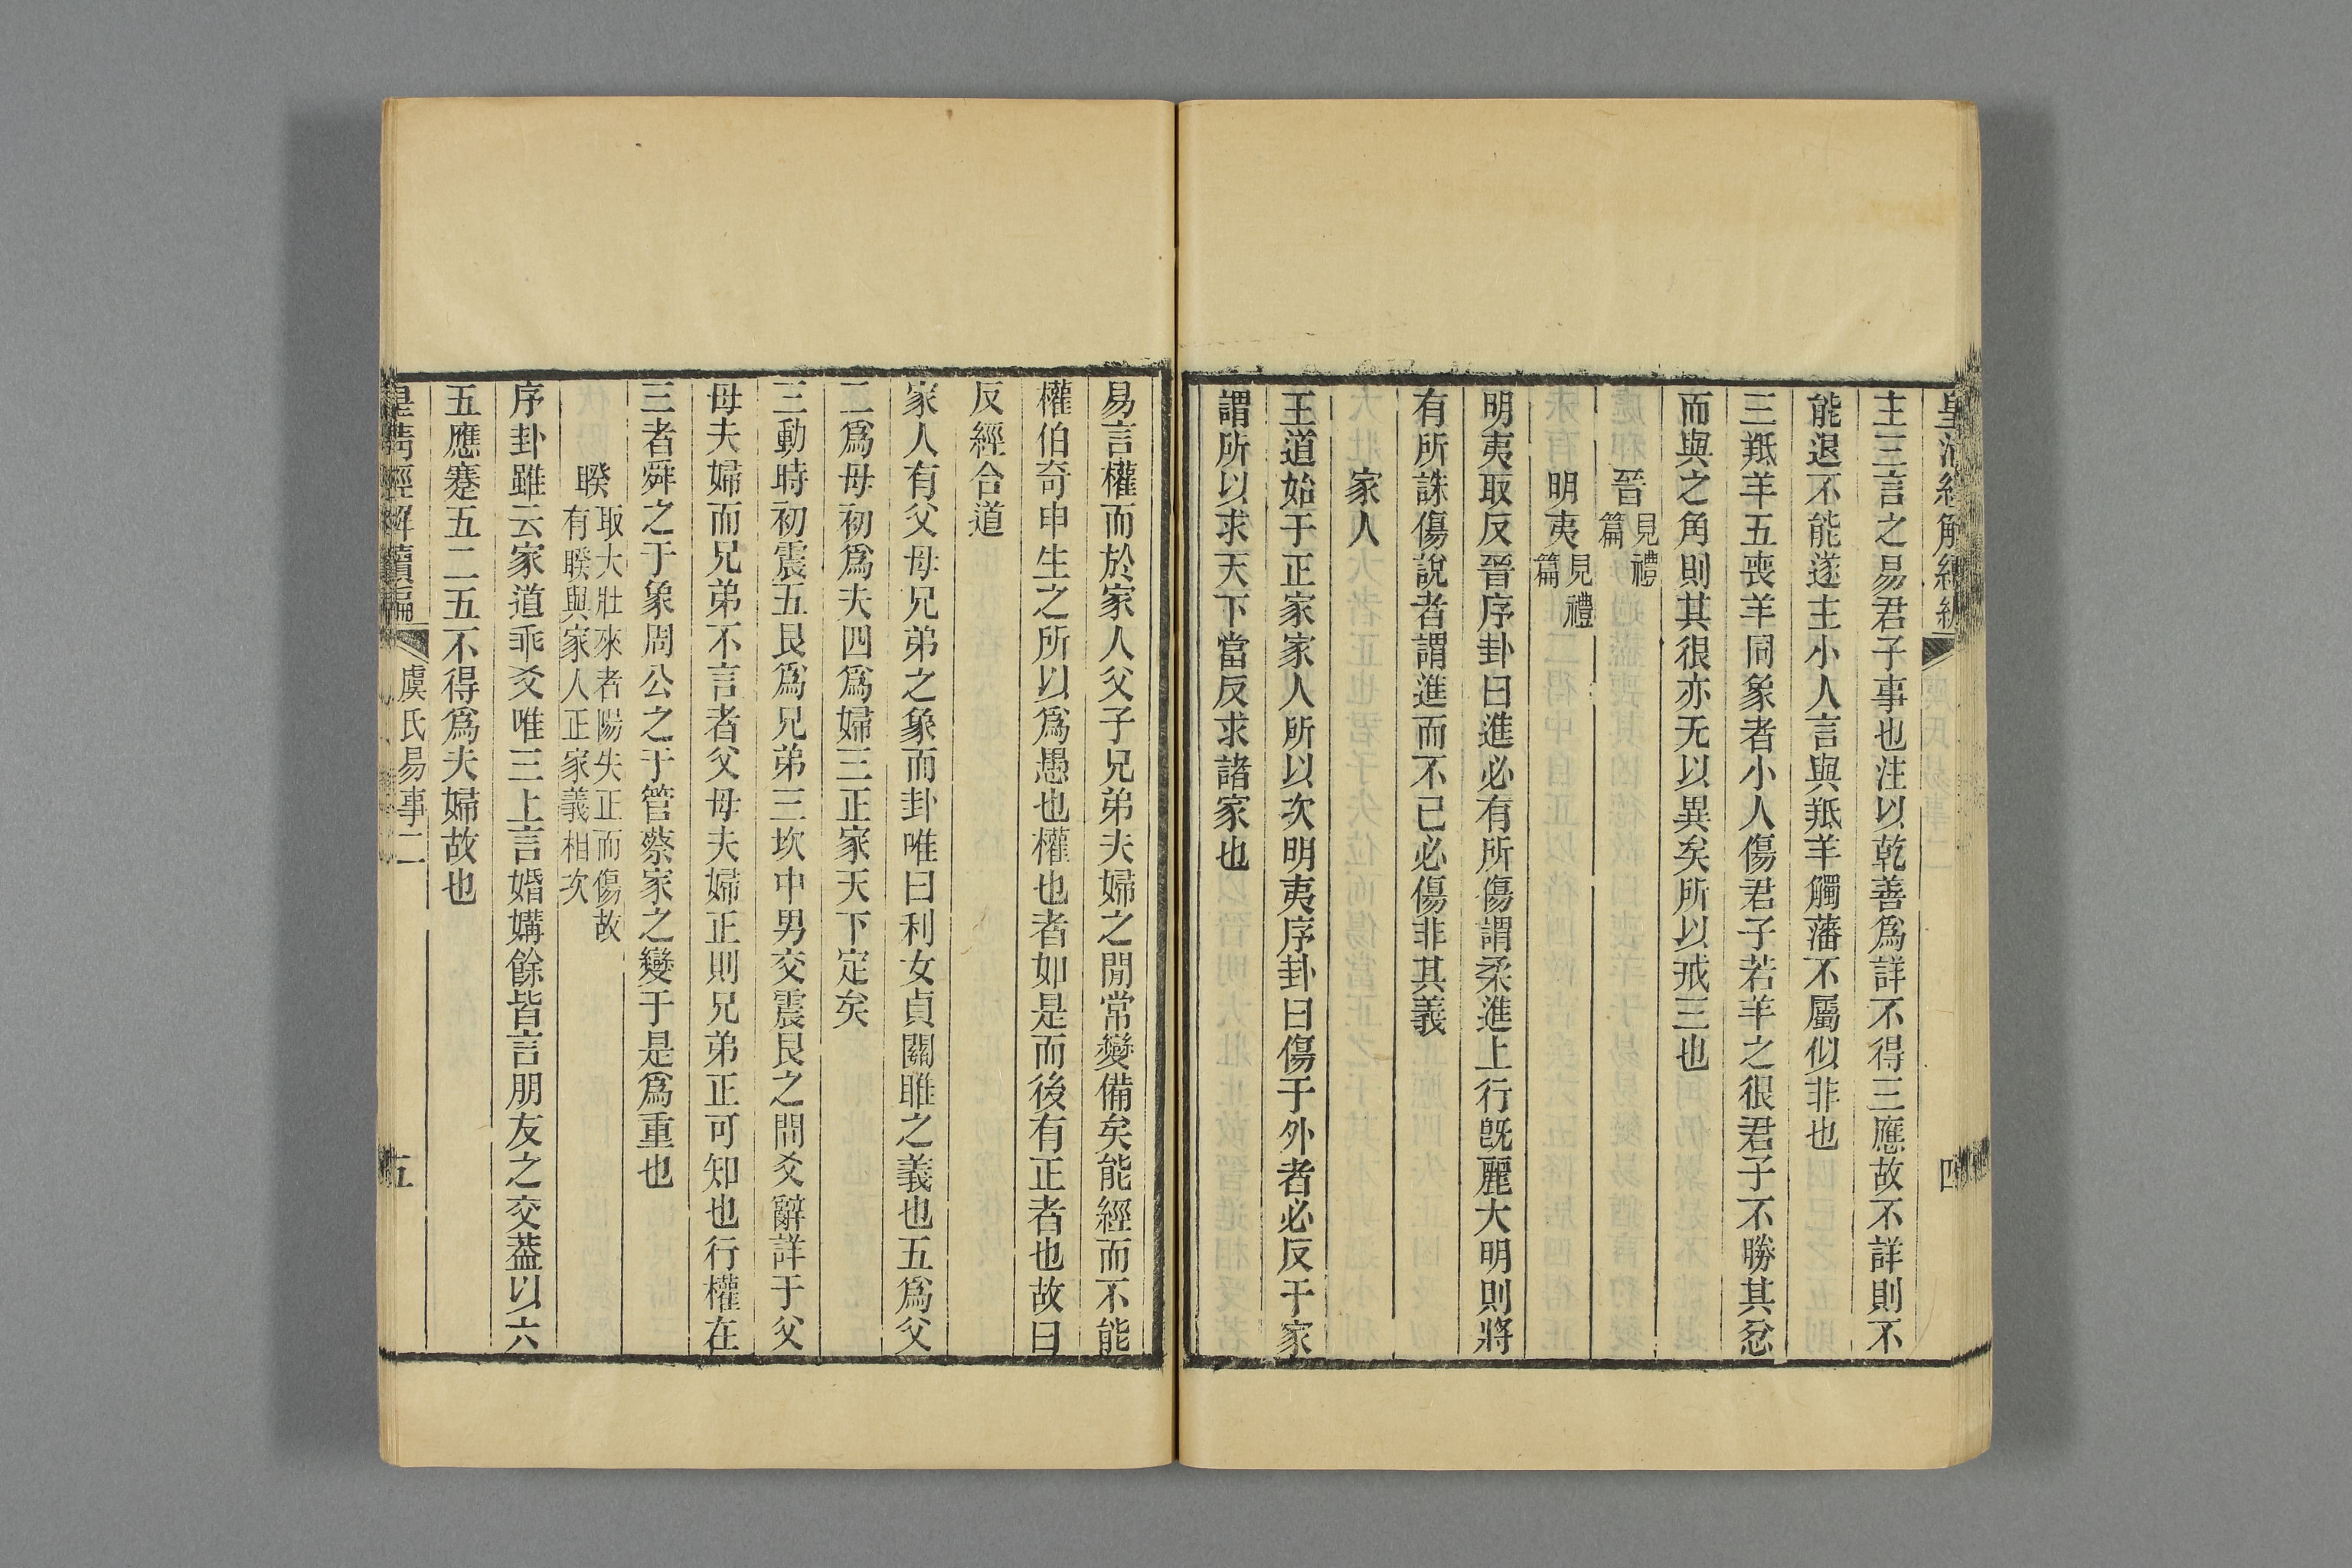 皇清經解續編
四
主三言之易君子事也注以乾善爲詳不得三應故不詳則不
能退不能遂主小人言與羝羊觸藩不屬似非也
三羝羊五喪羊同象者小人傷君子若羊之很君子不勝其忿
而與之角則其很亦无以異矣所以戒三也
晉見禮篇
明夷見禮篇
明夷取反晉序卦曰進必有所傷謂柔進上行旣麗大明則將
有所誅傷說者謂進而不已必傷非其義
家人
王道始于正家家人所以次明夷序卦曰傷于外者必反于家
謂所以求天下當反求諸家也
易言權而於家人父子兄弟夫婦之閒常變備矣能經而不能
權伯奇申生之所以爲愚也權也者如是而後有正者也故曰
反經合道
家人有父母兄弟之象而卦唯曰利女貞關雎之義也五爲父
二爲母初爲夫四爲婦三正家天下定矣
三動時初震五艮爲兄弟三坎中男交震艮之間爻辭詳于父
母夫婦而兄弟不言者父母夫婦正則兄弟正可知也行權在
三者舜之于象周公之于管蔡家之變于是爲重也
睽取大壯來者陽失正而傷故有睽與家人正家義相次
序卦雖云家道乖爻唯三上言婚媾餘皆言朋友之交葢以六
五應蹇五二五不得爲夫婦故也
皇清經解續編
虞氏易事二
五